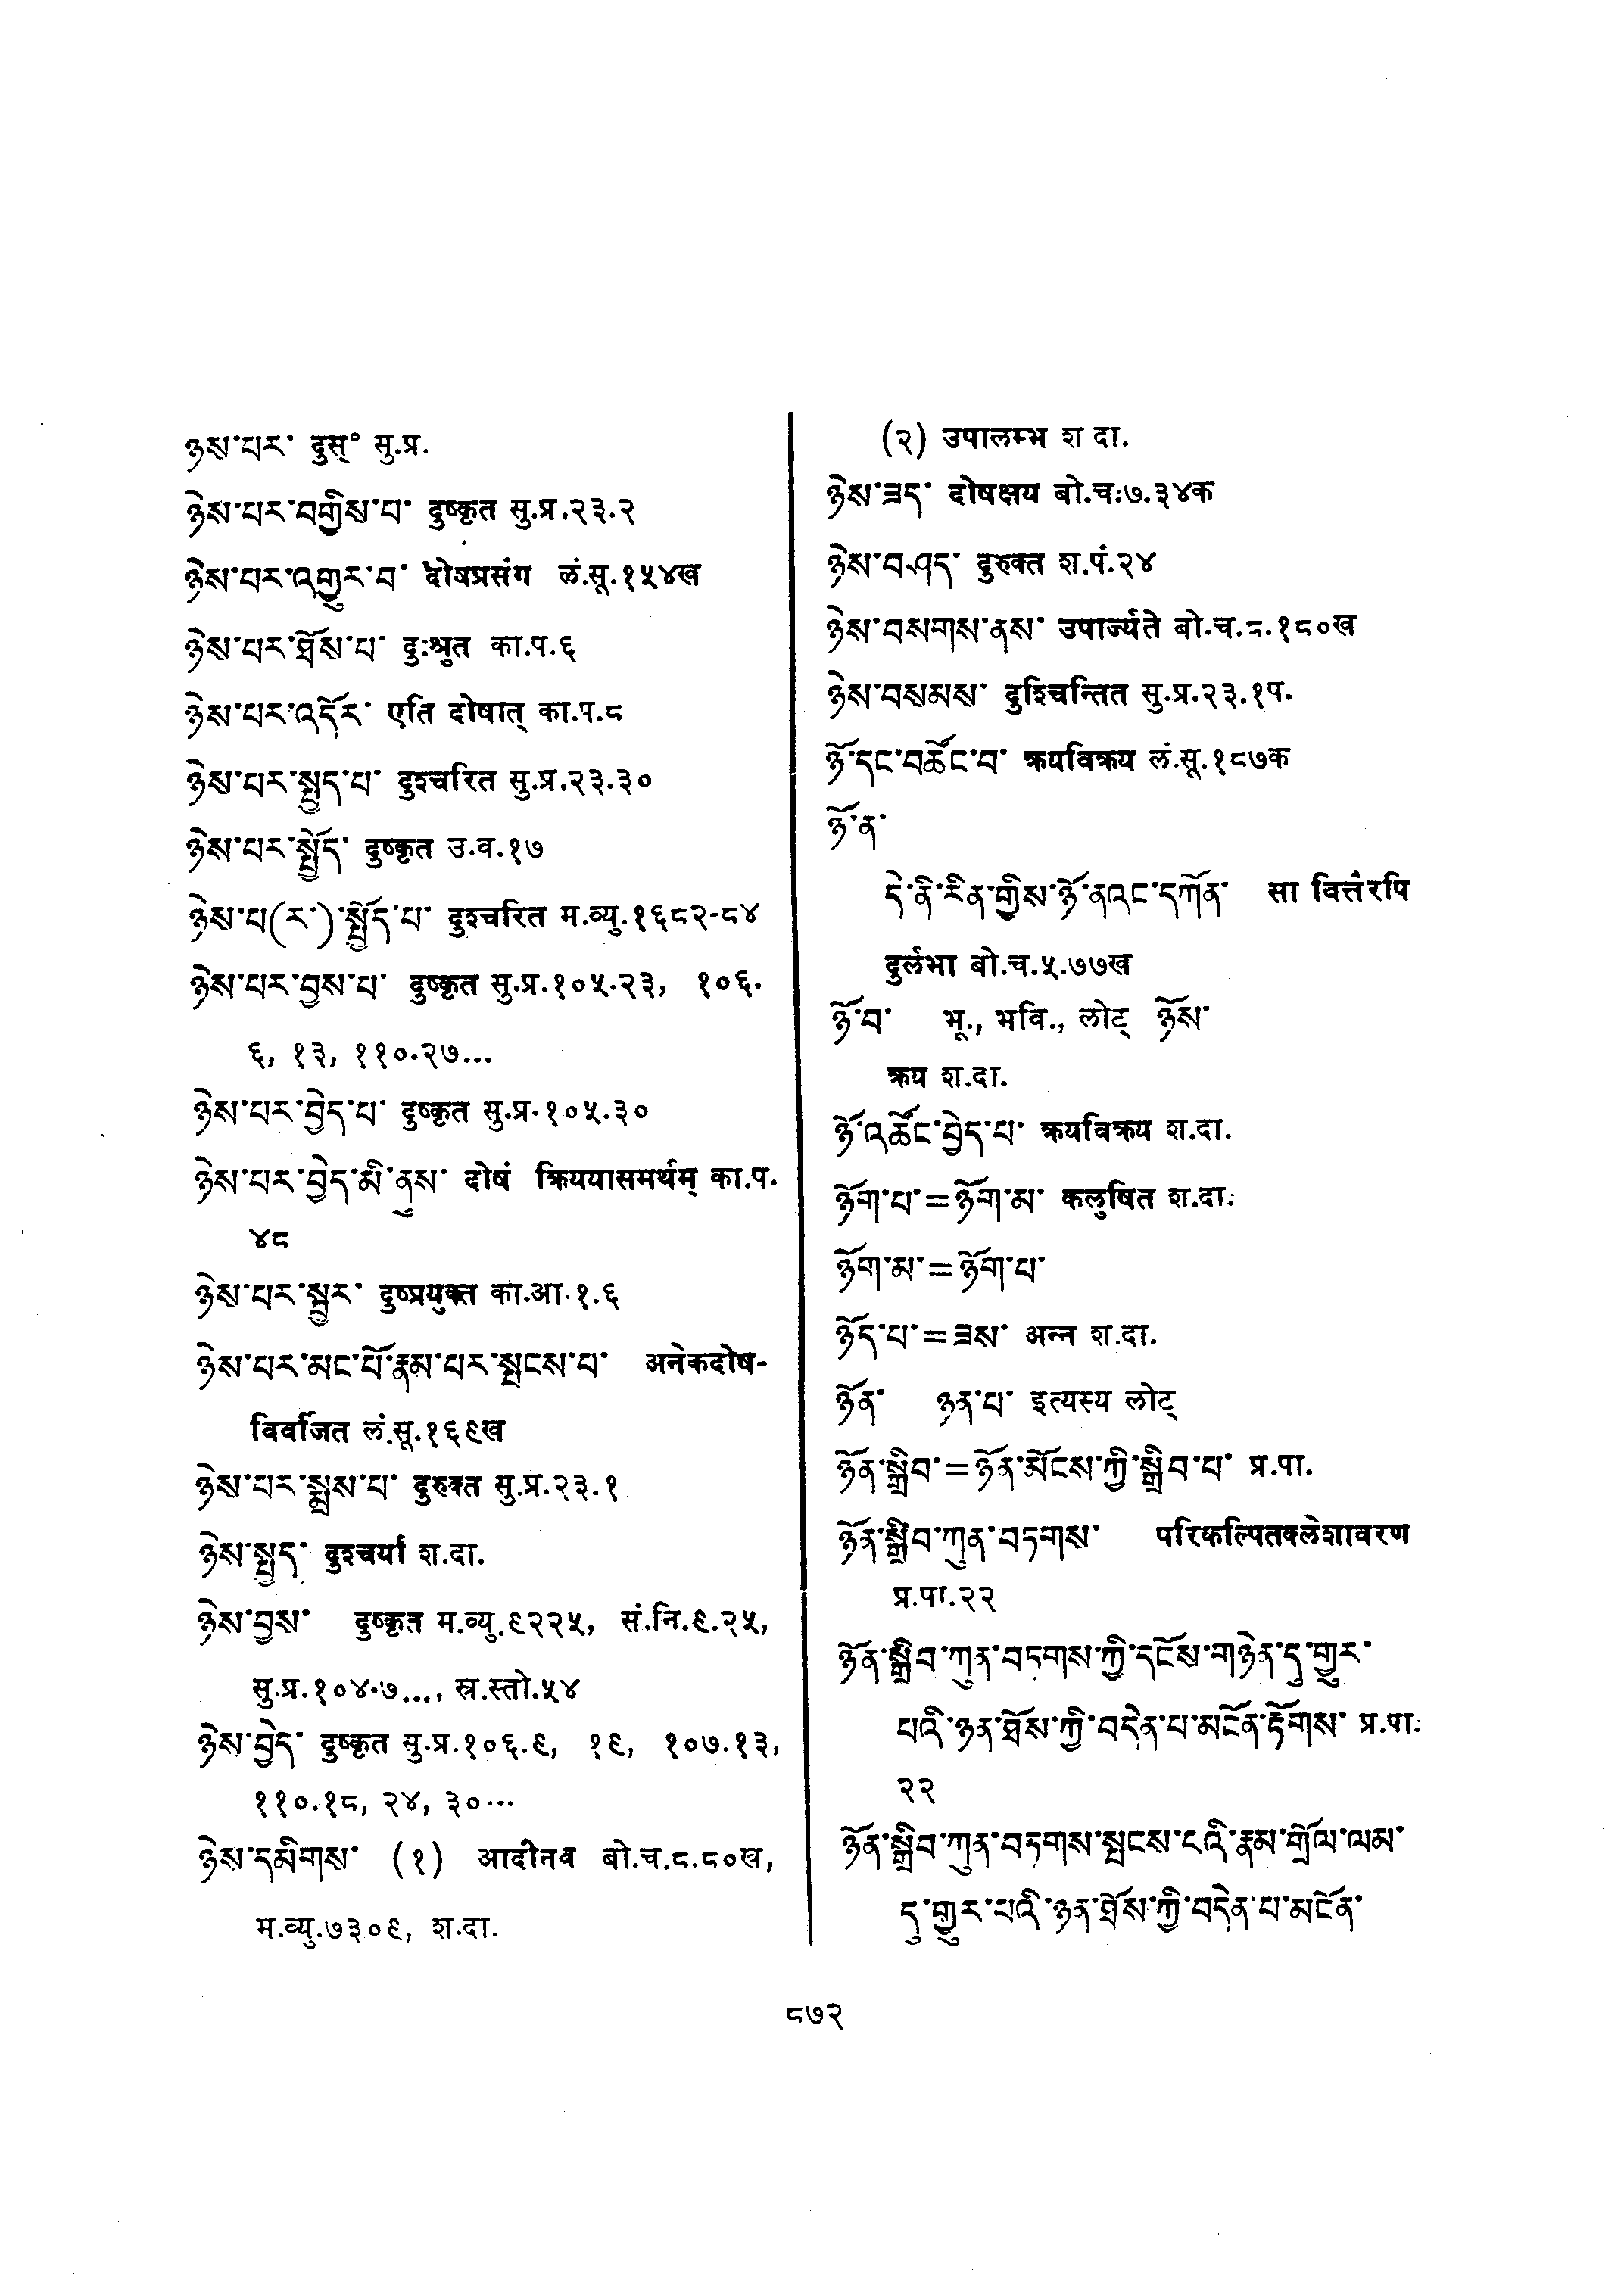 ཉེས་པར་ दुस्° सु.प्र.
ཉེས་པར་བགྱིས་པ་ दुष्कृत सु.प्र.२३.२
ཉེས་པར་འགྱུར་བ་ दोषप्रसंग लं.सू.१५४ख
ཉེས་པར་ཐོས་པ་ दुःश्रुत का.प.६
ཉེས་པར་འདོར་ एति दोषात् का.प.८
ཉེས་པར་སྤྱད་པ་ दुश्चरित सु.प्र.२३.३०
ཉེས་པར་སྤྱོད་ दुष्कृत उ.व.१७
ཉེས་པ(ར་)་སྤྱོད་པ་ दुश्चरित म.व्यु.१६८२-८४
ཉེས་པར་བྱས་པ་ दुष्कृत सु.प्र.१०५.२३, १०६.
६, १३, ११०.२७...
ཉེས་པར་བྱེད་པ་ दुष्कृत सु.प्र.१०५.३०
ཉེས་པར་བྱེད་མི་ནུས་ दोषं क्रिययासमर्थम् का.प.
४८
ཉེས་པར་སྦྱར་ दुष्प्रयुक्त का.आ.१.६
ཉེས་པར་མང་པོ་རྣམ་པར་སྤངས་པ་ अनेकदोष-
विवर्जित लं.सू.१६९ख
ཉེས་པར་སྨྲས་པ་ दुरुक्त सु.प्र.२३.१
ཉེས་སྤྱད་ दुश्चर्या श.दा.
ཉེས་བྱས་ दुष्कृत म.व्यु.९२२५, सं.नि.९.२५,
सु.प्र.१०४.७..., स्र.स्तो.५४
ཉེས་བྱེད་ दुष्कृत सु.प्र.१०६.९, १९, १०७.१३,
११०.१८, २४, ३०...
ཉེས་དམིགས་ (१) आदीनव बो.च.८.८०ख,
म.व्यु.७३०९, श.दा.
(२) उपालम्भ श दा.
ཉེས་ཟད་ दोषक्षय बो.च.७.३४क
ཉེས་བཤད་ दुरुक्त श.पं.२४
ཉེས་བསགས་ནས་ उपार्ज्यते बो.च.८.१८०ख
ཉེས་བསམས་ दुश्चिन्तित सु.प्र.२३.१प.
ཉོ་དང་བཚོང་བ་ क्रयविक्रय लं.सू.१८७क
ཉོ་ན་
དེ་ནི་རིན་གྱིས་ཉོ་ནའང་དཀོན་ सा वित्तैरपि
दुर्लभा बो.च.५.७७ख
ཉོ་བ་ भू., भवि., लोट् ཉོས་
क्रय श.दा.
ཉོ་འཚོང་བྱེད་པ་ क्रयविक्रय श.दा.
ཉོག་པ་=ཉོག་མ་ कलुषित श.दा.
ཉོག་མ་=ཉོག་པ་
ཉོད་པ་=ཟས་ अन्न श.दा.
ཉོན་ ཉན་པ་ इत्यस्य लोट्
ཉོན་སྒྲིབ་=ཉོན་མོངས་ཀྱི་སྒྲིབ་པ་ प्र.पा.
ཉོན་སྒྲིབ་ཀུན་བཏགས་ परिकल्पितक्लेशावरण
प्र.पा.२२
ཉོན་སྒྲིབ་ཀུན་བཏགས་ཀྱི་དངོས་གཉེན་དུ་གྱུར་
པའི་ཉན་ཐོས་ཀྱི་བདེན་པ་མངོན་རྟོགས་ प्र.पा.
२२
ཉོན་སྒྲིབ་ཀུན་བཏགས་སྤངས་ངའི་རྣམ་གྲོལ་ལམ་
དུ་གྱུར་པའི་ཉན་ཐོས་ཀྱི་བདེན་པ་མངོན་
८७२